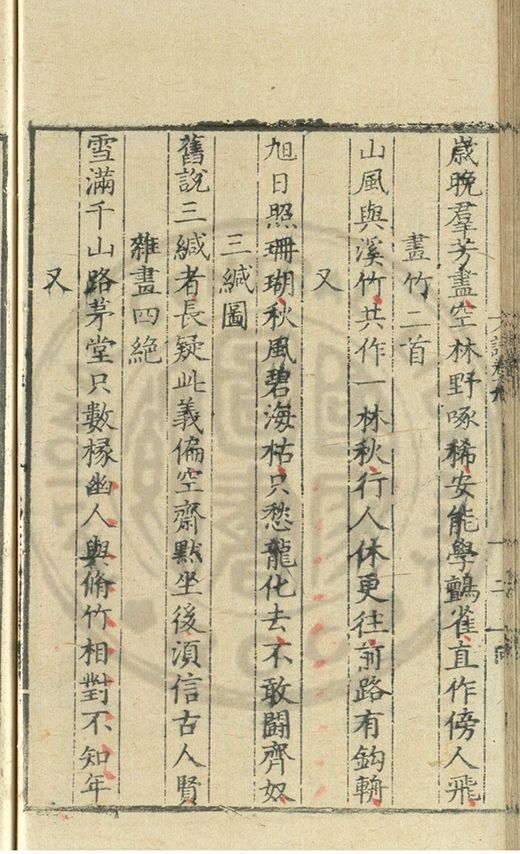 歲晚羣芳盡空林野啄稀安能學鷦雀直作傍人飛
畫竹二首
山風與溪竹共作一林秋行人休更往前路有鈎輈
又
旭日照珊瑚秋風碧海枯只愁龍化去不敢鬬齊奴
三緘圖
舊説三緘者長疑此義偏空齋點坐後湏信古人賢
雜畫四絶
雪滿千山路茅堂只數椽幽人與脩竹相對不知年
又